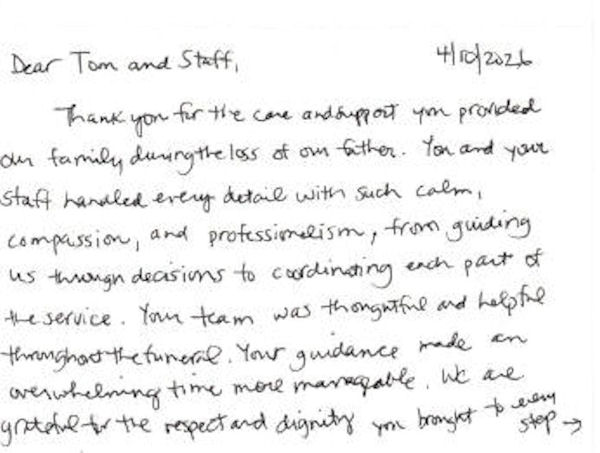 Dear Tom and Staff, 4/10/2026
Thank you for the care and support you provided
our family during the loss of our father. You and your
staff handled every detail with such calm,
compassion, and professionalism, from guiding
us through decisions to coordinating each part of
the service. Your team was thoughtful and helpful
throughout the funeral. Your guidance made an
overwhelming time more manageable. We are
grateful for the respect and dignity you brought to every
step →